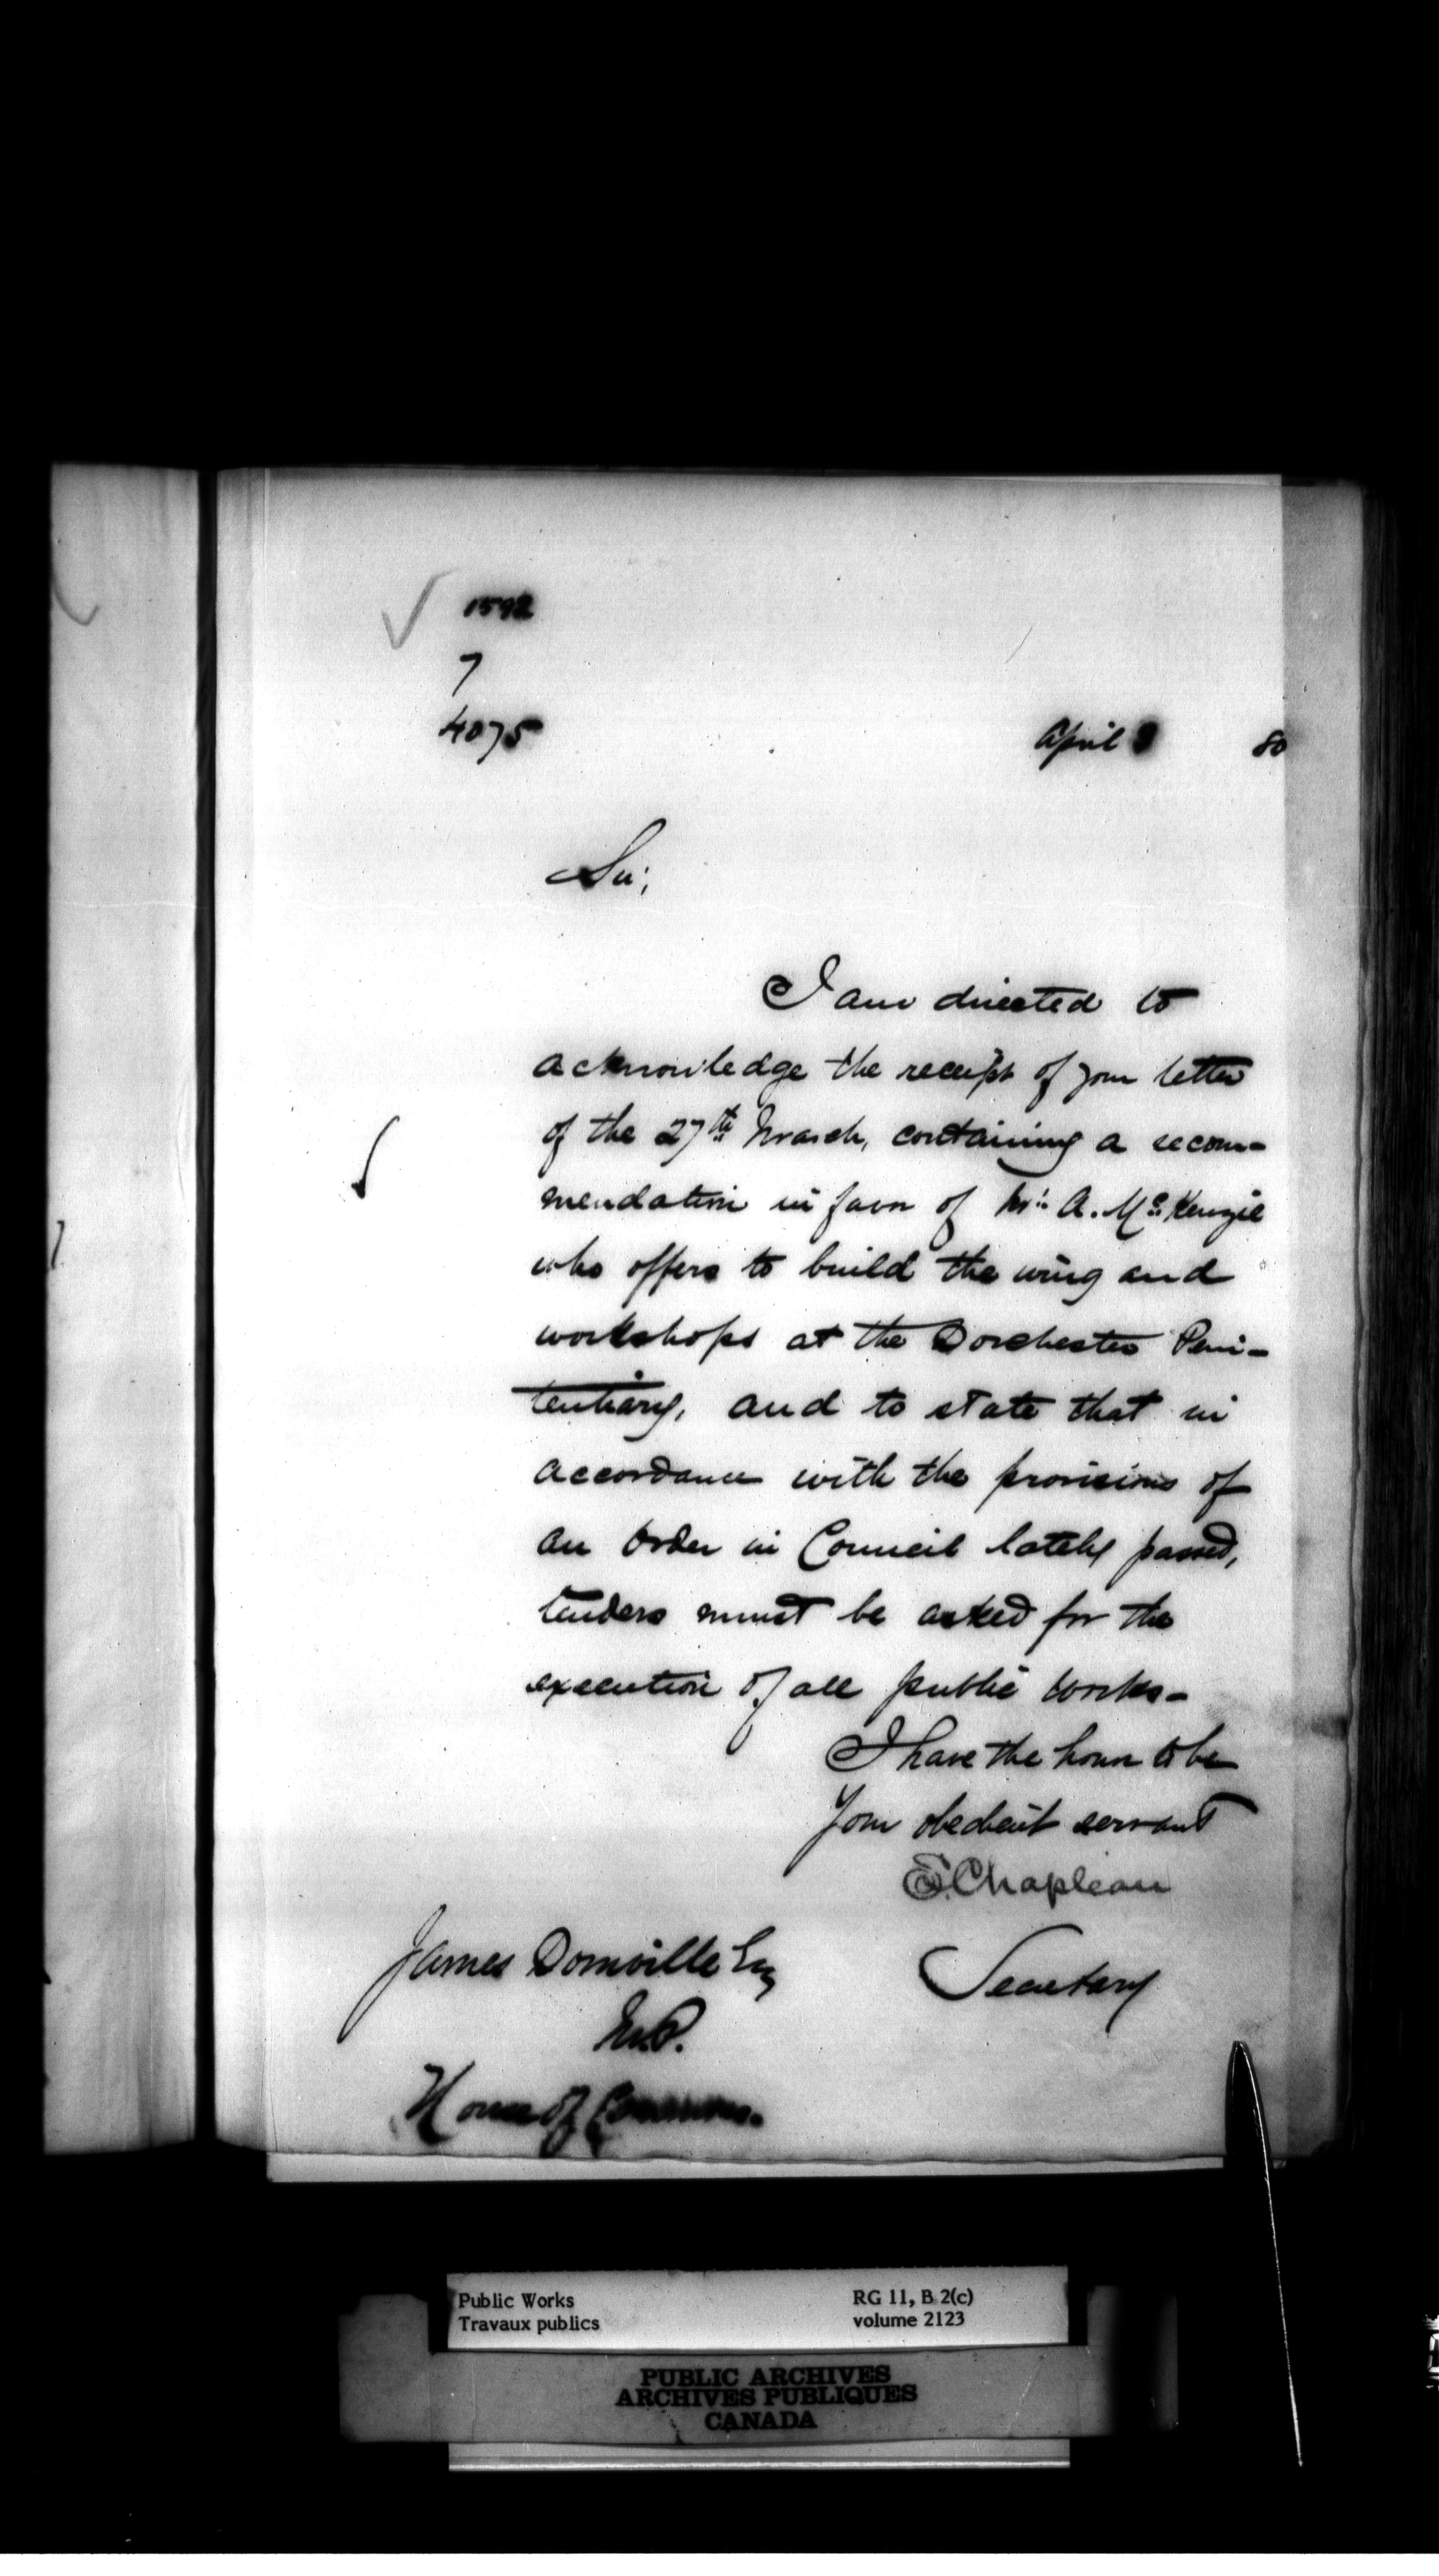 1592
7
4075
April 80
Sir;
I am directed to
acknowledge the receipt of your letter
of the 27th March, containing a recom-
mendation in favor of Mr. A. McKenzie
who offers to build the wing and
workshops at the Dorchester Peni-
tentiary, and to state that in
accordance with the provisions of
an Order in Council lately passed,
tenders must be asked for the
execution of all public works-
I have the honor to be
Your obedient servant
Chapleau
Secretary
James Domville Esq
M.P.
House of Commons.
Public Works
Travaux publics
RG 11, B 2(c)
volume 2123
PUBLIC ARCHIVES
ARCHIVES PUBLIQUES
CANADA